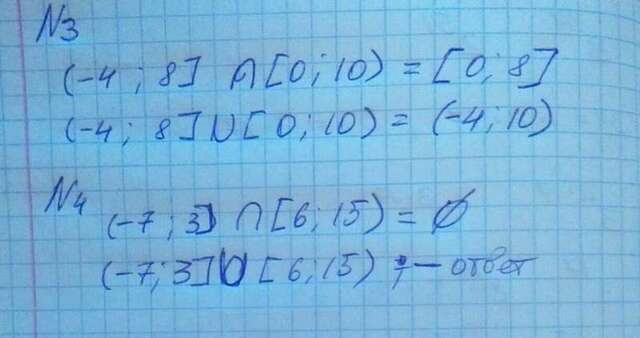 N3
(-4; 8] ∩ [0; 10) = [0; 8]
(-4; 8] ∪ [0; 10) = (-4; 10)
N4
(-7; 3] ∩ [6; 15) = ∅
(-7; 3] ∪ [6; 15) ; — ответ